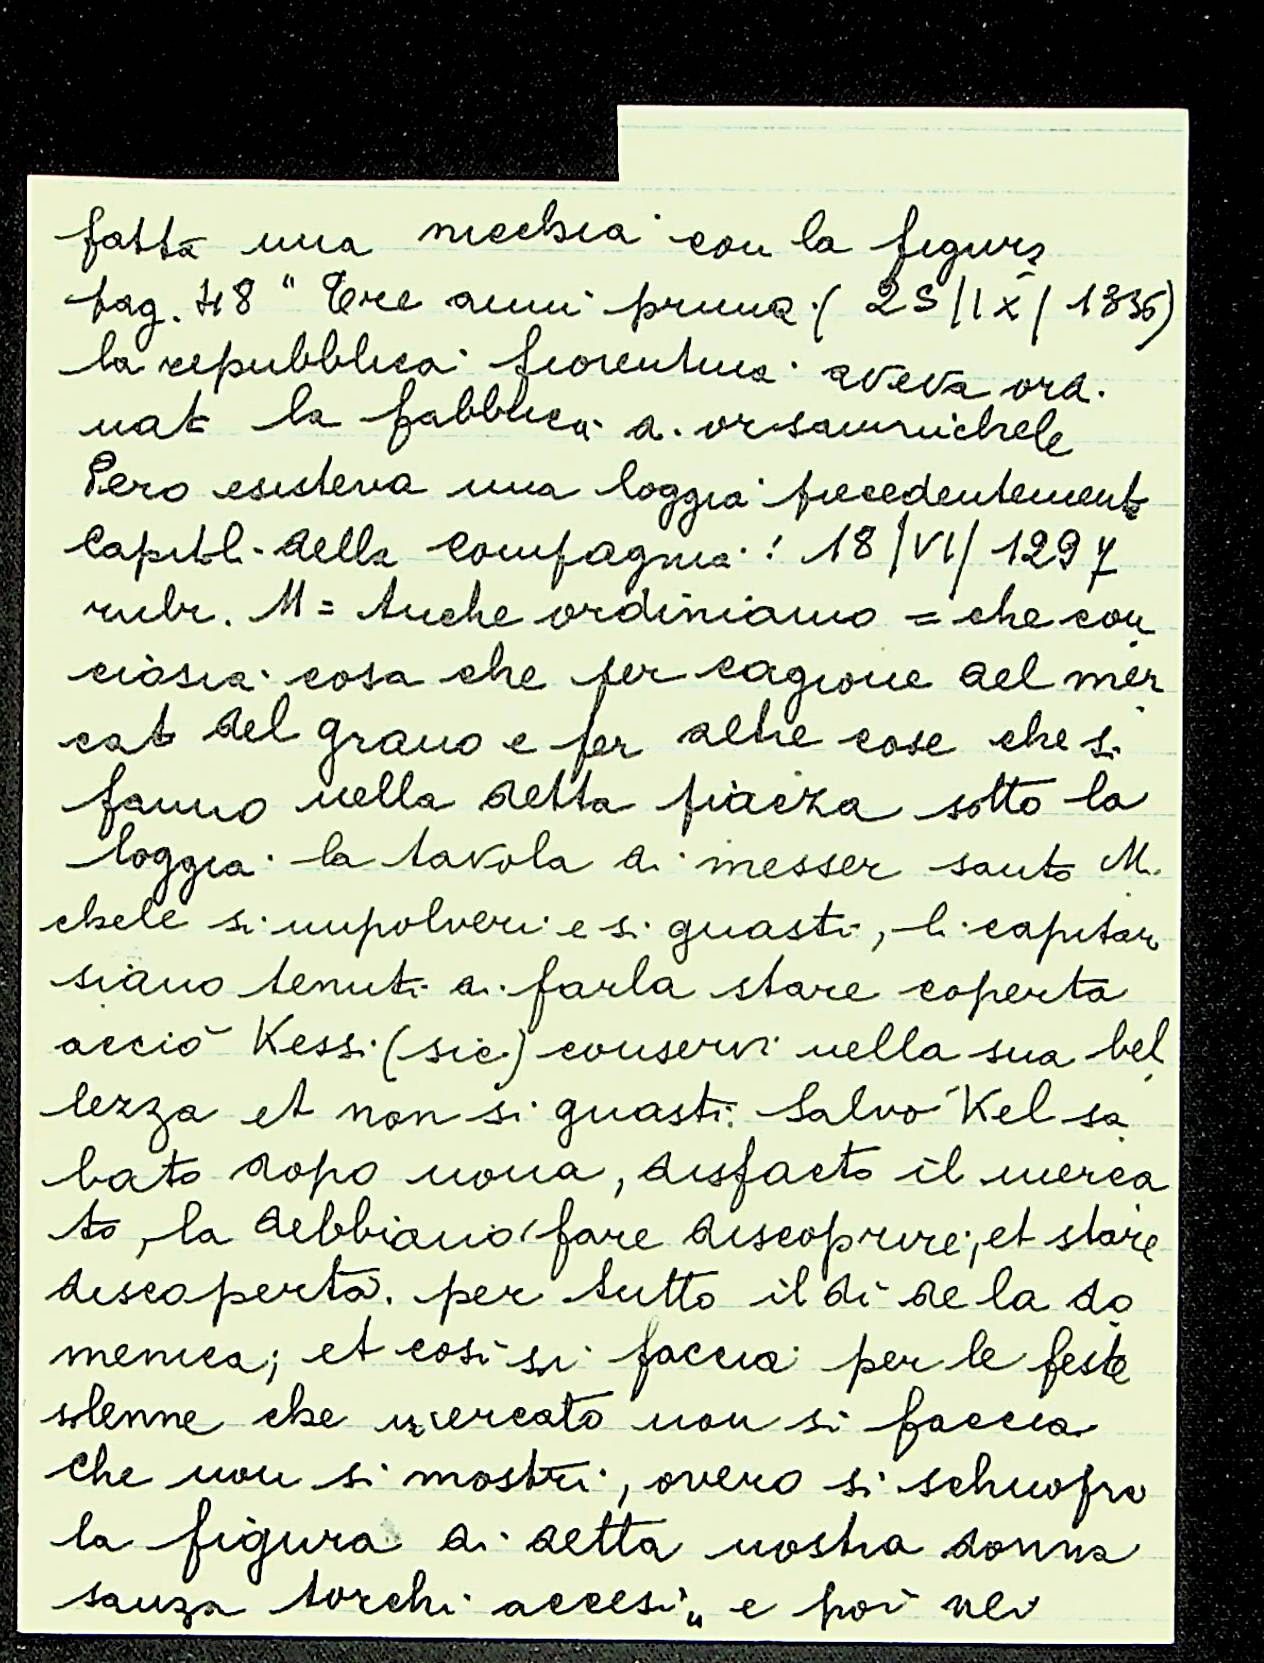 fatta una nicchia con la figura
pag. 48 " Tre anni prima (25/IX/1336)
la repubblica fiorentina aveva ord.
nat la fabbrica d. orsanmichele
Pero esisteva una loggia precedentement
Capitol. della compagnia: 18/VI/1297
rubr. M = Anche ordiniamo = che con
ciòsia cosa che per cagione del mer
cat del grano e per altre cose che si
fanno nella detta piacza sotto la
loggia la tavola di messer santo Mi
chele si impolveri e si guasti, li capitan
siano tenuti di farla stare coperta
acciò Kessi (sic) conservi nella sua bel
lezza et non si guasti. Salvo Kel sa
bato dopo nona, disfacto il merca
to, la debbiano fare discoprire; et stare
discoperta. per tutto il di de la do
menica; et così si faccia per le feste
solenne che mercato non si faccia
che non si mostri, overo si schuopra
la figura di detta nostra donna
sanza torchi accesi" e poi nei